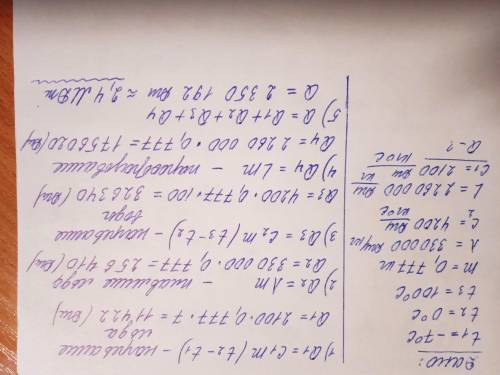 Дано:
t₁ = -7°C
t₂ = 0°C
t₃ = 100°C
m = 0,777 кг
λ = 330 000 Дж/кг
C₂ = 4200 Дж/кг°C
L = 2260 000 Дж/кг
C₁ = 2100 Дж/кг°C
Q - ?
1) Q₁ = C₁m (t₂ - t₁) - нагревание льда
Q₁ = 2100 · 0,777 · 7 = 11422 (Дж)
2) Q₂ = λm - плавление льда
Q₂ = 330 000 · 0,777 = 256 410 (Дж)
3) Q₃ = C₂m (t₃ - t₂) - нагревание воды
Q₃ = 4200 · 0,777 · 100 = 326340 (Дж)
4) Q₄ = Lm - парообразование
Q₄ = 2260 000 · 0,777 = 1756020 (Дж)
5) Q = Q₁ + Q₂ + Q₃ + Q₄
Q = 2 350 192 Дж ≈ 2,4 МДж